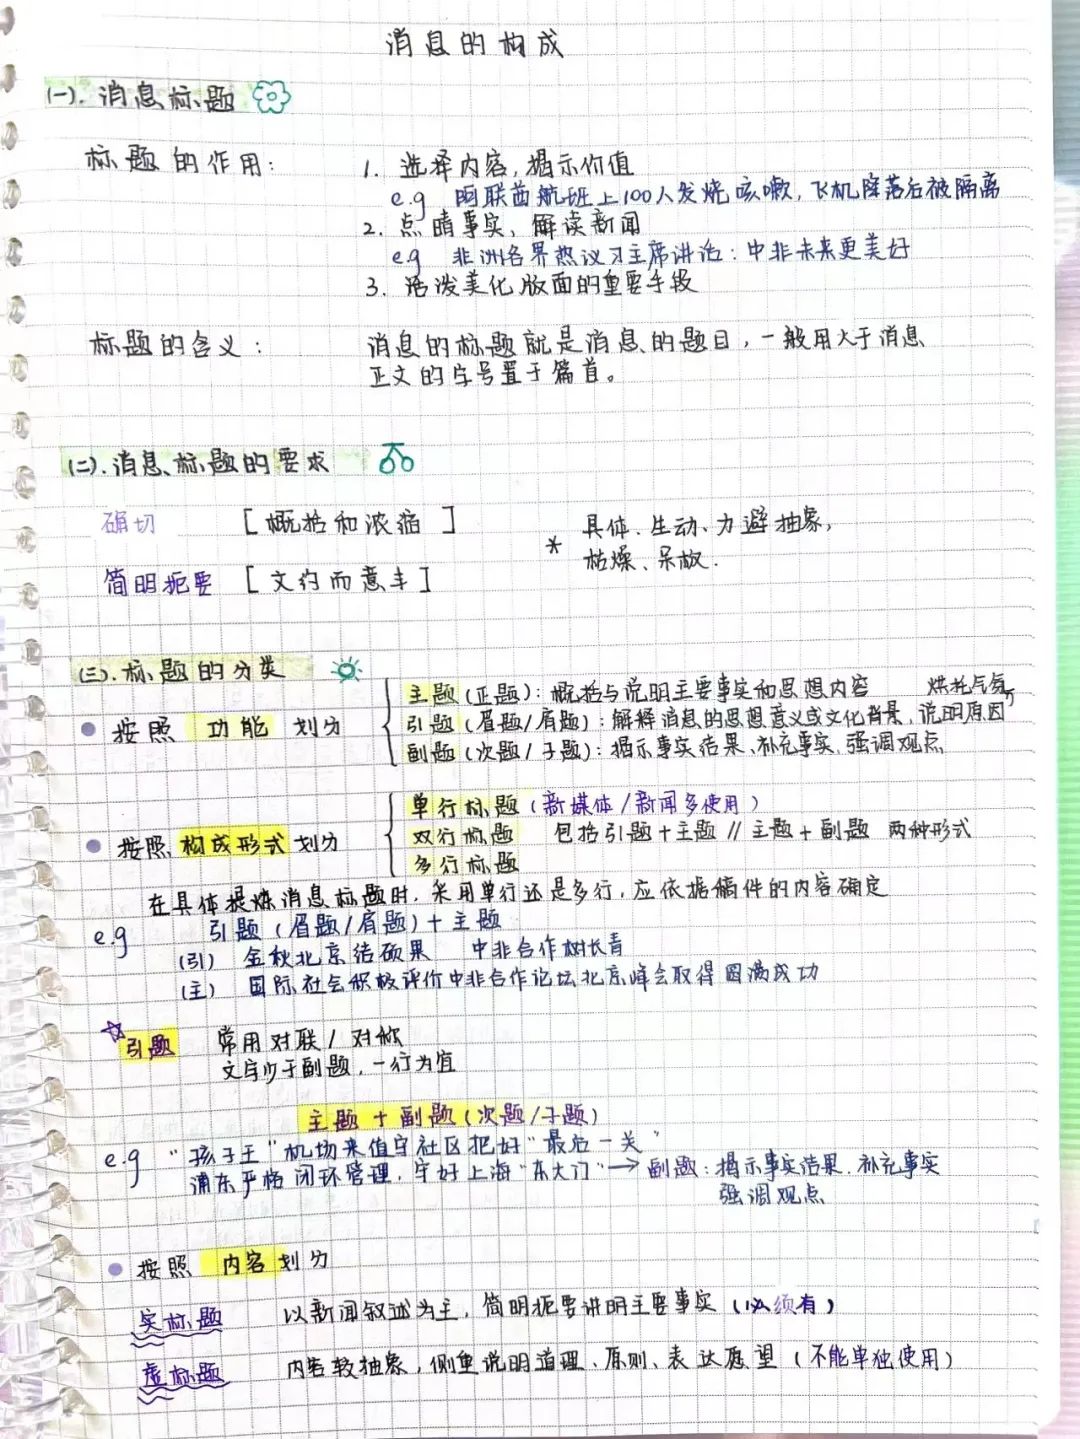 消息的构成
(一). 消息标题
标题的作用: 1. 选择内容, 揭示价值
e.g 阿联酋航班上100人发烧咳嗽, 飞机降落后被隔离
2. 点睛事实, 解读新闻
e.g 非洲各界热议习主席讲话: 中非未来更美好
3. 活泼美化版面的重要手段
标题的含义: 消息的标题就是消息的题目, 一般用大于消息
正文的字号置于篇首。
(二). 消息标题的要求
确切 [概括和浓缩]
* 具体、生动、力避抽象,
枯燥、呆板.
简明扼要 [文约而意丰]
(三). 标题的分类
主题(正题): 概括与说明主要事实和思想内容 烘托气氛
按照 功能 划分 引题(眉题/肩题): 解释消息的思想意义或文化背景、说明原因
副题(次题/子题): 揭示事实结果、补充事实、强调观点
单行标题(新媒体/新闻多使用)
按照 构成形式 划分 双行标题 包括引题+主题 // 主题+副题 两种形式
多行标题
在具体提炼消息标题时, 采用单行还是多行, 应依据稿件的内容确定
e.g 引题(眉题/肩题)+主题
(引) 金秋北京结硕果 中非合作树长青
(主) 国际社会积极评价中非合作论坛北京峰会取得圆满成功
引题 常用对联/对称
文字少于副题, 一行为宜
主题+副题(次题/子题)
e.g "孩子王"机场来值守社区把好"最后一关"
浦东严格闭环管理, 守好上海"东大门" → 副题: 揭示事实结果、补充事实
强调观点
按照 内容 划分
实标题 以新闻叙述为主, 简明扼要讲明主要事实 (必须有)
虚标题 内容较抽象, 侧重说明道理、原则、表达愿望 (不能单独使用)